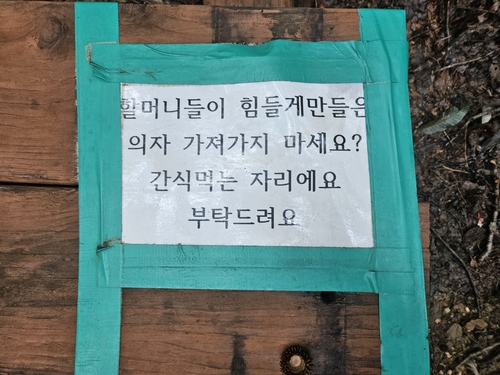 할머니들이 힘들게만들은
의자 가져가지 마세요?
간식먹는 자리에요
부탁드려요